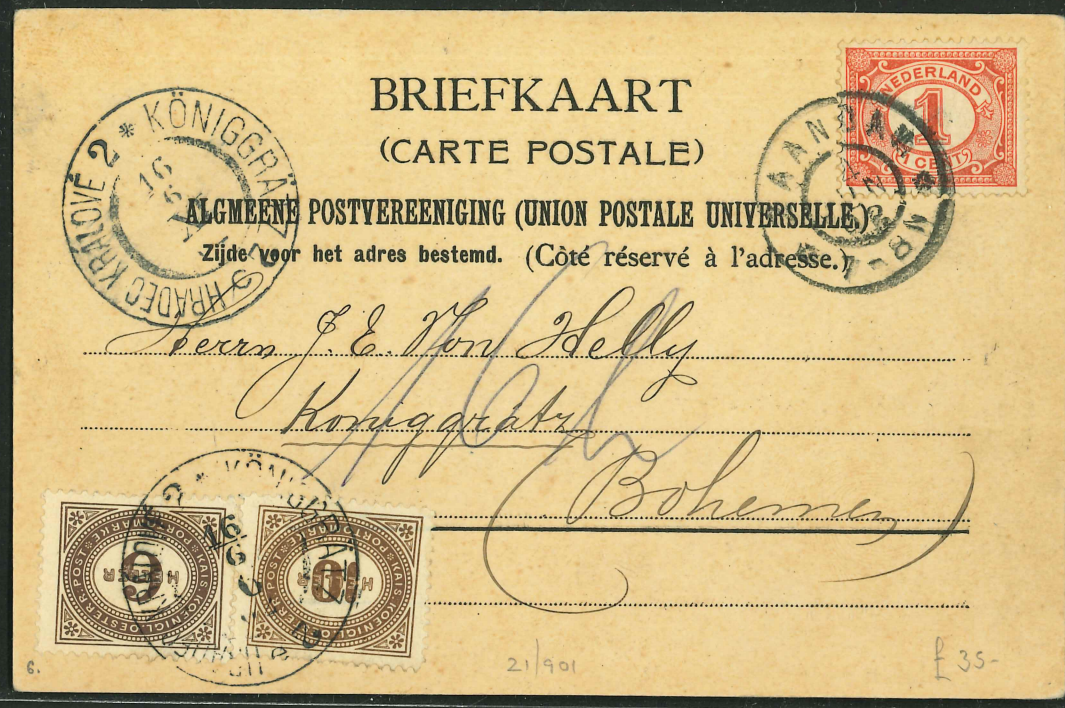 BRIEFKAART
(CARTE POSTALE)
ALGMEENE POSTVEREENIGING (UNION POSTALE UNIVERSELLE.)
Zijde voor het adres bestemd. (Côté réservé à l'adresse.)
NEDERLAND
1
1 CENT
AANDAM
7-8N
KÖNIGGRÄTZ 2
HRADEC KRÁLOVÉ 2
16
Herrn J. E. Von Helly
Koniggratz
Bohemen
16
KAIS. KOENIGL. OESTERR. POST
PORTOMARKE
6
HELLER
KAIS. KOENIGL. OESTERR. POST
PORTOMARKE
10
HELLER
KÖNIGGRÄTZ 2
16
6
6.
21/901
£ 35-